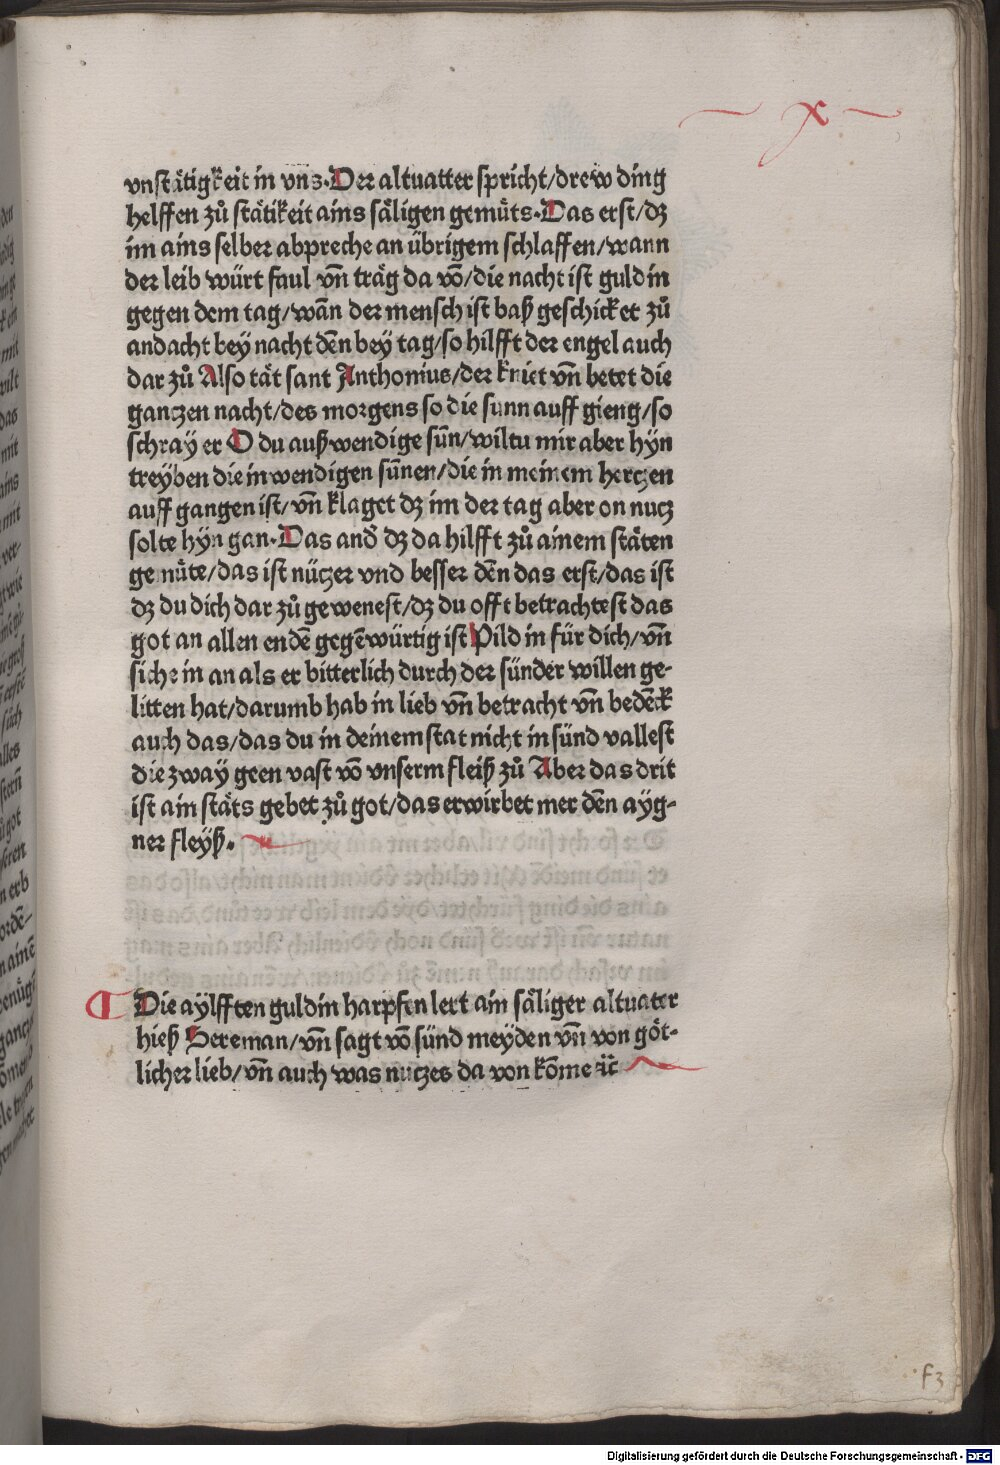 x
vnstätigkeit in vns·Der altuatter spricht/drew ding
helffen zů stätikeit ains säligen gemüts·Das erst/dz
im ains selber abpreche an übrigem schlaffen/wann
der leib würt faul vn̄ träg da vō/die nacht ist guldin
gegen dem tag/wān der mensch ist baß geschicket zů
andacht bey nacht dēn bey tag/so hilfft der engel auch
dar zů Also tät sant Anthonius/der kniet vn̄ betet die
ganczen nacht/des morgens so die sunn auff gieng/so
schray er O du außwendige sūn/wiltu mir aber hyn
treyben die inwendigen sūnen/die in meinem herczen
auff gangen ist/vn̄ klaget dz im der tag aber on nucz
solte hyn gan·Das and̄ dz da hilfft zů ainem stäten
gemüte/das ist nüczer vnd besser dēn das erst/das ist
dz du dich dar zů gewenest/dz du offt betrachtest das
got an allen endē gegēwürtig ist Pild in für dich/vn̄
siche in an als er bitterlich durch der sünder willen ge-
litten hat/darumb hab in lieb vn̄ betracht vn̄ bedēck
auch das/das du in deinem stat nicht in sünd vallest
die zway geen vast vō vnserm fleiß zů Aber das drit
ist ain stäts gebet zů got/das erwirbet mer dēn ayg-
ner fleyß.
Die aylfften guldin harpfen lert ain säliger altuater
hieß Sereman/vn̄ sagt vō sünd meyden vn̄ von göt-
licher lieb/vn̄ auch was nuczes da von kōme ꝛc̄
f3
Digitalisierung gefördert durch die Deutsche Forschungsgemeinschaft - DFG